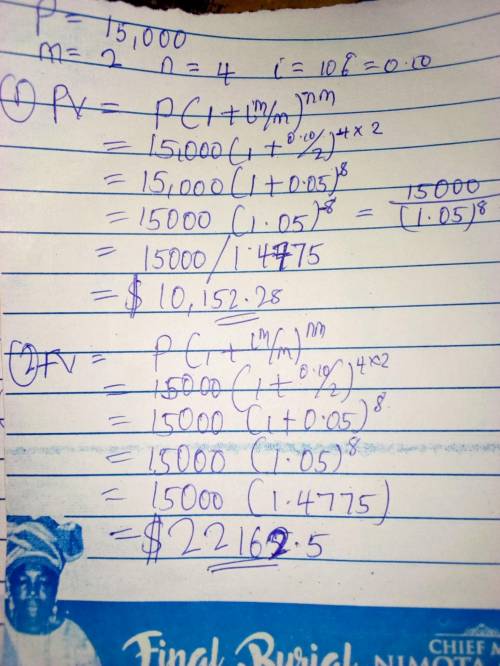 P = 15,000
m = 2 n = 4 i = 10% = 0.10
① PV = P(1 + i^m/m)^nm
= 15,000(1 + 0.10/2)^-4×2
= 15,000(1 + 0.05)^-8
= 15000 (1.05)^-8 = 15000/(1.05)^8
= 15000/1.4775
= $ 10,152.28
② FV = P(1 + i^m/m)^nm
= 15000(1 + 0.10/2)^4×2
= 15000 (1 + 0.05)^8
= 15000 (1.05)^8
= 15000 (1.4775)
= $22162.5
Final Burial
CHIEF